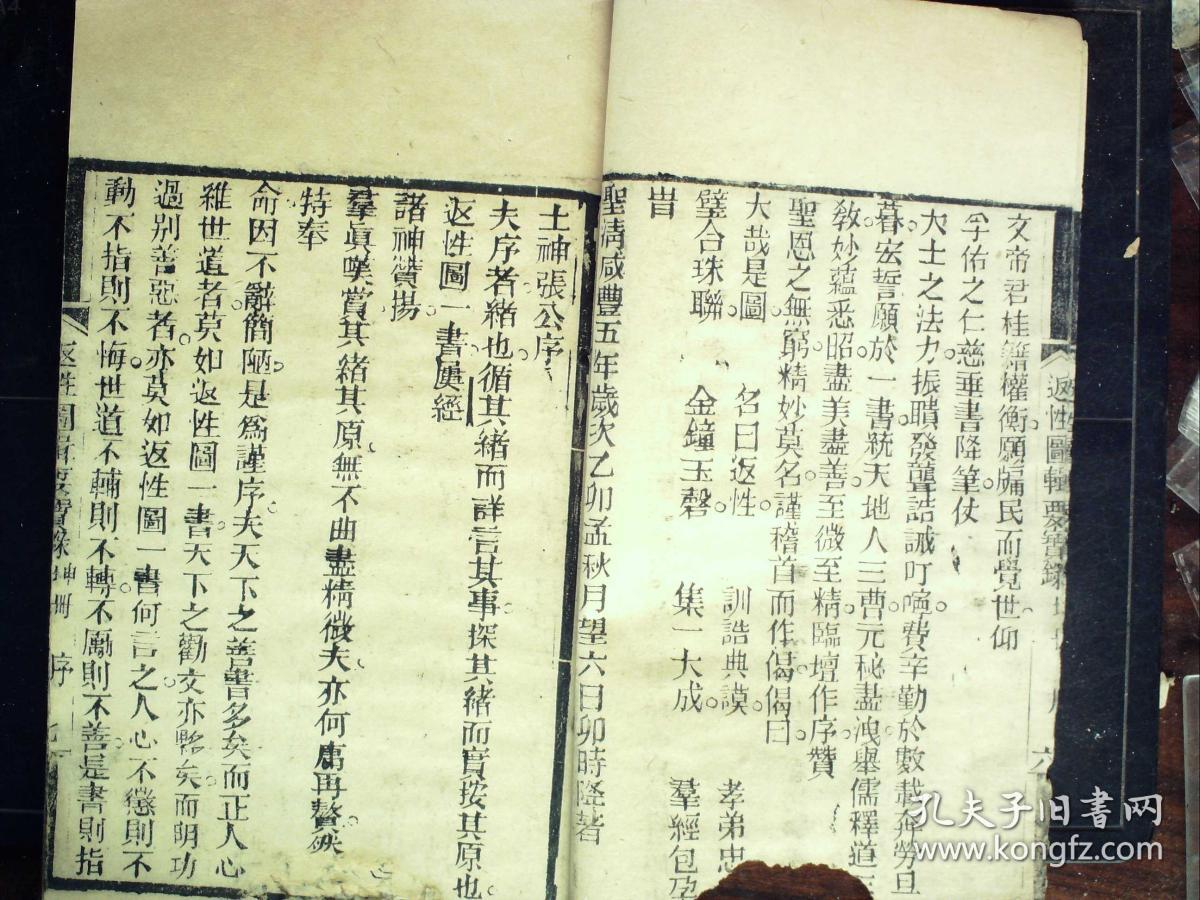 文帝君桂籍權衡願牖民而覺世仰
孚佑之仁慈垂書降筆仗
大士之法力振聵發聾誥誡叮嚀費辛勤於數載奔勞旦
暮宏誓願於一書統天地人三曹元秘盡洩舉儒釋道三
教妙蘊悉昭盡美盡善至微至精臨壇作序贊
聖恩之無窮精妙莫名謹稽首而作偈偈曰
大哉是圖 名曰返性 訓誥典謨 孝弟忠
璧合珠聯 金鐘玉磬 集一大成 羣經包孕
旹
聖清咸豐五年歲次乙卯孟秋月望六日卯時降著
土神張公序
夫序者緒也循其緒而詳言其事探其緒而實按其原也
返性圖一書屢經
諸神贊揚
羣眞嘆賞其緒其原無不曲盡精微夫亦何庸再贅茲
特奉
命因不辭簡陋是爲謹序夫天下之善書多矣而正人心
維世道者莫如返性圖一書天下之勸文亦夥矣而明功
過別善惡者亦莫如返性圖一書何言之人心不懲則不
動不指則不悔世道不輔則不轉不厲則不善是書則指
返性圖輯要寶錄 坤冊 序 七
返性圖輯要寶錄 六
孔夫子旧书网
www.kongfz.com